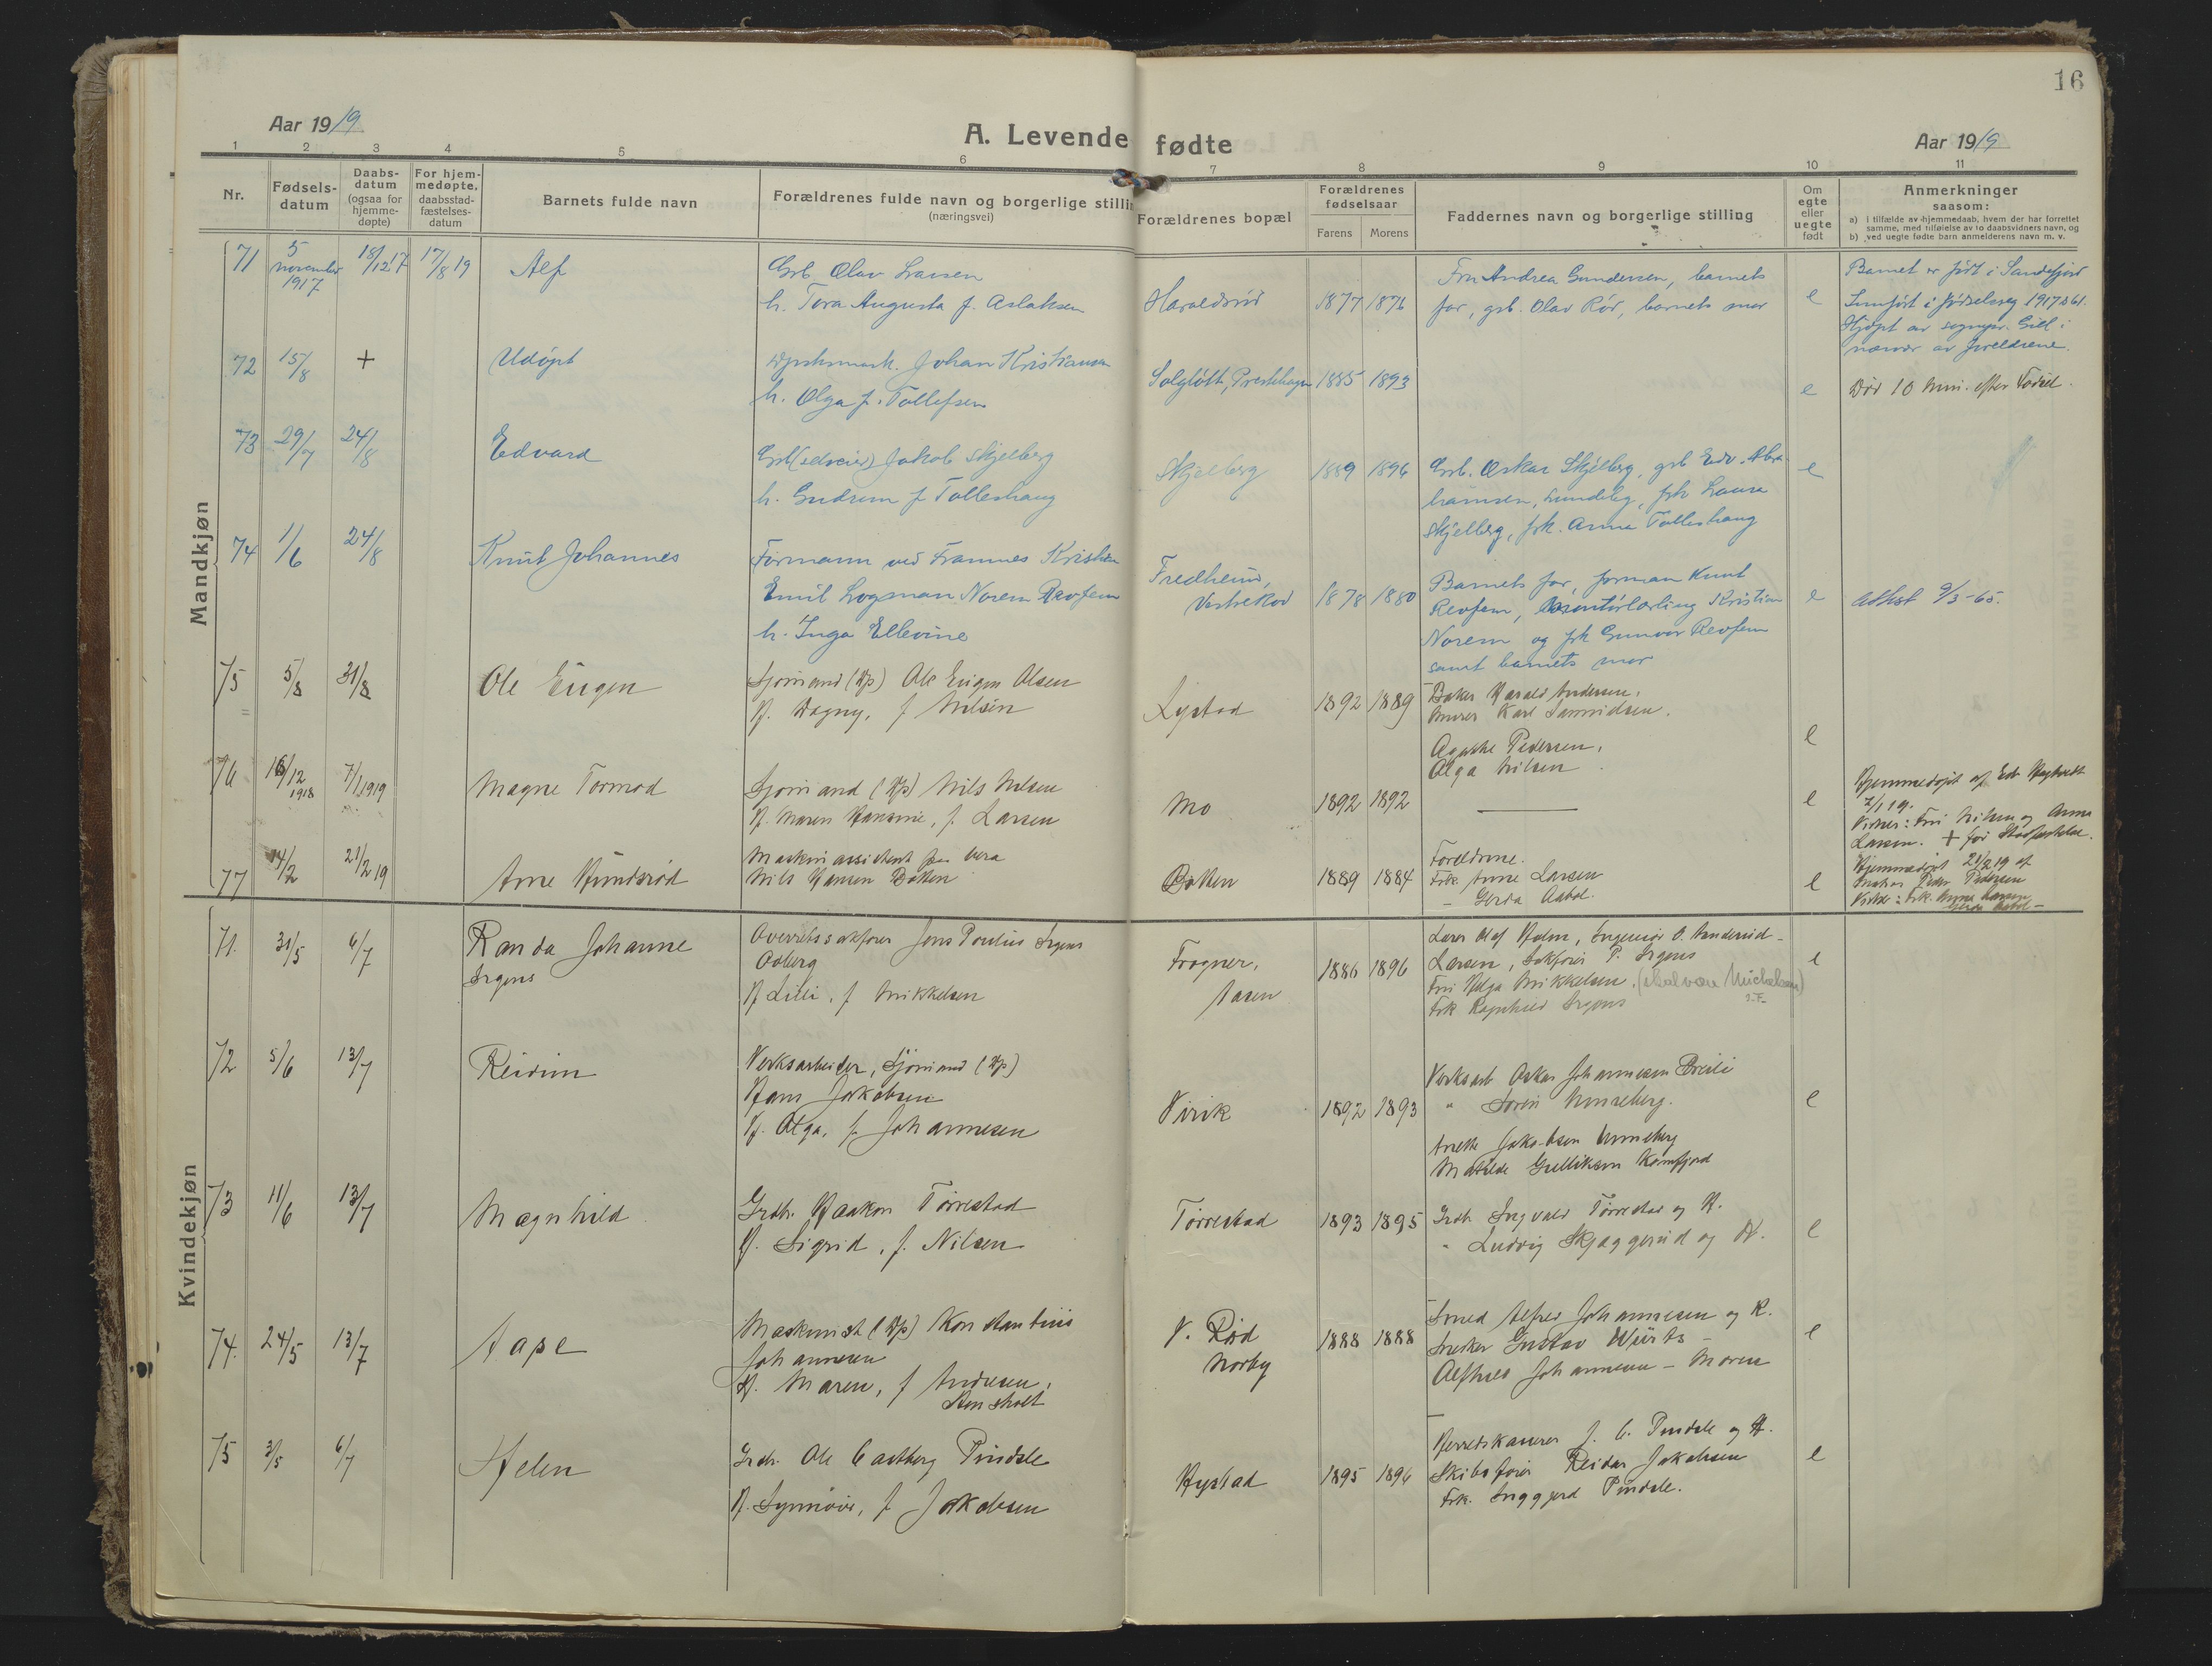 16
Aar 1919
A. Levende fødte
Aar 1919
1 2 3 4 5 6 7 8 9 10 11
Nr.
Fødsels-
datum
Daabs-
datum
(ogsaa for
hjemme-
døpte)
For hjem-
medøpte,
daabsstad-
fæstelses-
datum
Barnets fulde navn
Forældrenes fulde navn og borgerlige stilli
(næringsvei)
Forældrenes bopæl
Forældrenes
fødselsaar
Farens Morens
Faddernes navn og borgerlige stilling
Om
egte
eller
uegte
født
Anmerkninger
saasom:
a) i tilfælde av hjemmedaab, hvem der har forrettet
samme, med tilføielse av to daabsvidners navn, og
b) ved uegte fødte barn anmelderens navn m. v.
Mandkjøn
71
5
november
1917
18/12 17
17/8 19
Alf
Grb. Olav Larsen
h. Tora Augusta f. Aslaksen
Haraldsrød
1877 1876
Fru Andrea Gundersen, barnets
far, grb. Olav Rør, barnets mor
e
Barnet er født i Sandefjord
Innført i fødselsreg 1917
Hjdøpt av sognepr. i
nærvær av foreldrene.
72
15/8
+
Udøpt
Johan Kristiansen
h. Olga f. Tollefsen
Solgløtt, Prestehagen
1885 1893
e
Død 10 min. efter Fødsel.
73
29/7
24/8
Edvard
Grb (selveier) Jakob Skjelberg
h. Gudrun f Tolleshaug
Skjelberg
1889 1896
Grb. Oskar Skjelberg, grb Edv. Abra-
hamsen, Lundeby, frk Laura
Skjelberg, frk. Anna Tolleshaug
e
74
1/6
24/8
Knut Johannes
Formann ved Framnes Kristian
Emil Logman Norem Revfem
h. Inga Ellevine
Fredheim,
Vestrekov
1878 1880
Barnets far, forman Knut
Revfem, Kristian
Norem og frk Gunvor Revfem
samt barnets mor
e
Attest 9/3-65.
75
5/8
31/8
Ole Eugen
Sjømand (Hp) Ole Eugen Olsen
H. Dagny, f Nilsen
Nystad
1892 1889
Baker Harald Andersen,
Murer Karl
Agathe Pedersen,
Olga Nilsen
e
76
16/12
1918
7/1 1919
Magne Tormod
Sjømand (Hp) Nils Nilsen
H. Maren Hansine, f. Larsen
Mo
1892 1892
e
Hjemmedøpt af Edv
7/1 19.
Vidner: Fru Nilsen og Anna
Larsen. + før Stadfæstelse.
77
14/2
21/2 19
Arne Hundsrød
Maskinassistent
Nils Hansen Botten
Botten
1889 1884
Foreldrene.
Frk Anne Larsen
- Gerda Aabol.
e
Hjemmedøpt 21/2 19 af
Peder Pedersen
Vidner: Frk. Anne Larsen
Gerda Aabol -
Kvindekjøn
71.
31/5
6/7
Randa Johanne
Irgens
Overretssakfører Jens Paulus Irgens
Oxberg
H Lilli, f Mikkelsen
Frogner,
Aasen
1886 1896
Lærer Olaf Holm, Ingeniør O.
Larsen, Sakfører P. Irgens
Fru Helga Mikkelsen. (skal være Michelsen)
Frk Ragnhild Irgens
e
72
5/6
13/7
Reidun
Verksarbeider, Sjømand (Hp)
Hans Jakobsen
H. Olga, f. Johannesen
Virik
1892 1893
Verksarb Oskar Johannesen Breili
" Søren Unneberg.
Anette Jakobsen Unneberg
Matilde Gulliksen Kamfjord
e
73
11/6
13/7
Magnhild
Grdb. Haakon Tørrestad
H. Sigrid, f. Nilsen
Tørrestad
1893 1895
Grdb Ingvald Tørrestad og H.
" Ludvig Skjaggerud og H.
e
74.
24/5
13/7
Aase
Maskinist (Hp) Konstantius
Johannesen
H. Maren, f Andresen,
Stensholt
V. Rød
Norby
1888 1888
Smed Alfred Johannesen og H.
Snekker Gustav Würtz -
Alfhild Johannesen - Moren
e
75
3/5
6/7
Helen
Grdb. Ole Castberg Pindsle
H. Synnøve, f Jakobsen
Nystad
1895 1896
Herredskasserer J. C. Pindsle og H.
Skibsfører Reidar Jakobsen
Frk. Inggjerd Pindsle.
e